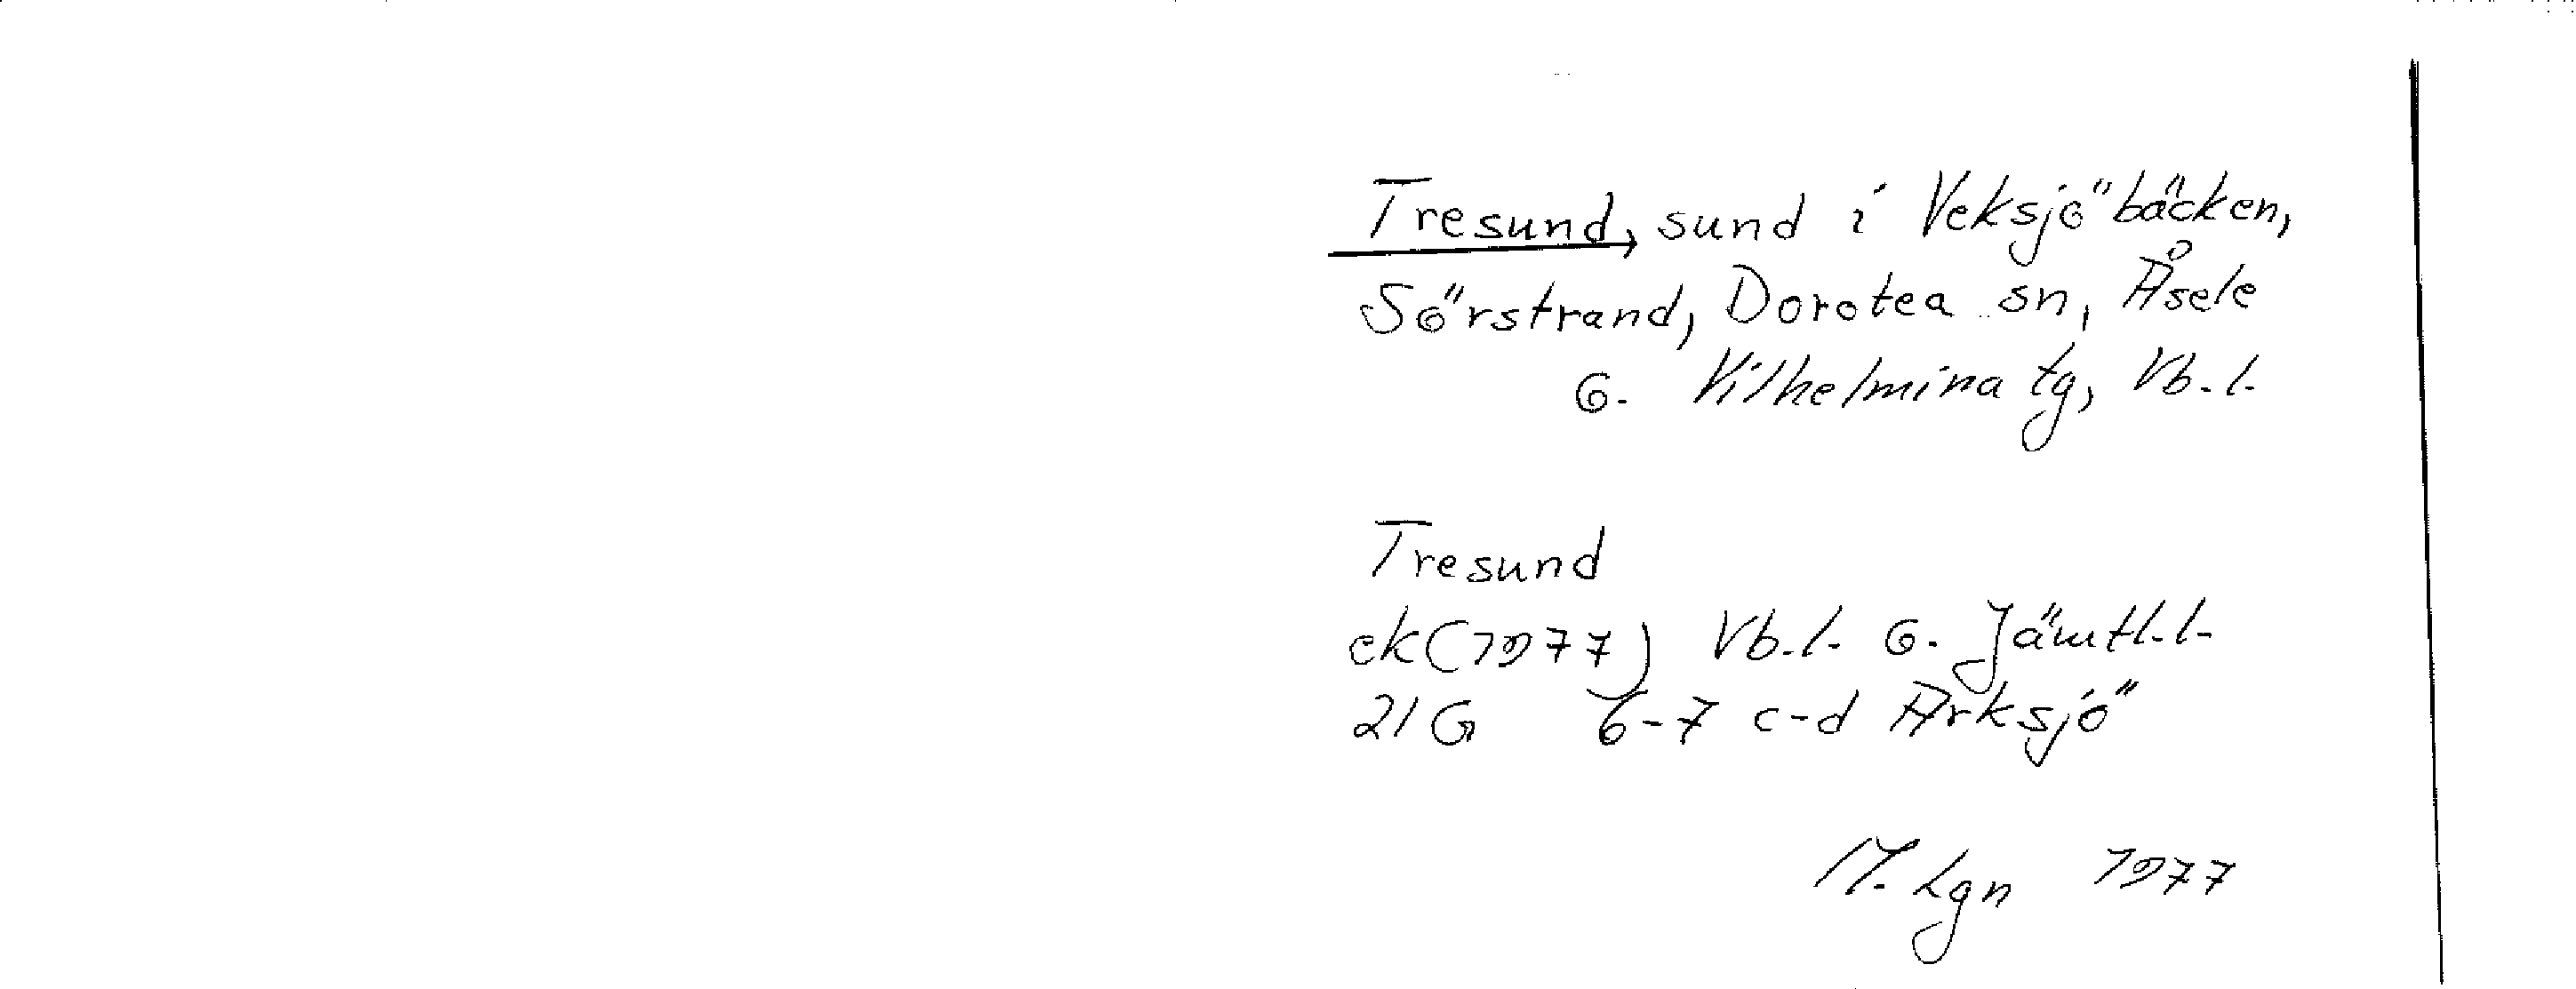 Tresund, sund i Veksjöbäcken,
Sörstrand, Dorotea sn, Åsele
o. Vilhelmina tg, Vb. l.
Tresund
ek(1977) Vb. l. o. Jämtl. l.
21G 6-7 c-d Arksjö
M. Lgn 1977